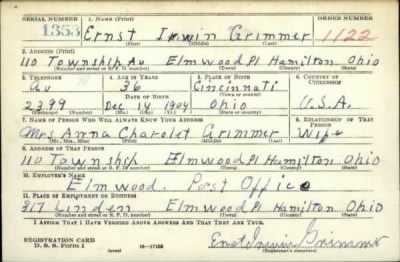 SERIAL NUMBER 1. NAME (Print) ORDER NUMBER
1353 Ernst Irwin Grimmer 1122
(First) (Middle) (Last)
2. ADDRESS (Print)
110 Township Av Elmwood Pl Hamilton Ohio
(Number and street or R. F. D. number) (Town) (County) (State)
3. TELEPHONE 4. AGE IN YEARS 5. PLACE OF BIRTH 6. COUNTRY OF CITIZENSHIP
Av 36 Cincinnati
(Town or county)
DATE OF BIRTH
2399 Dec 14 1904 Ohio U.S.A.
(Exchange) (Number) (Mo.) (Day) (Yr.) (State or country)
7. NAME OF PERSON WHO WILL ALWAYS KNOW YOUR ADDRESS 8. RELATIONSHIP OF THAT PERSON
Mrs Anna Charolet Grimmer Wife
(Mr., Mrs., Miss) (First) (Middle) (Last)
9. ADDRESS OF THAT PERSON
110 Township Elmwood Pl Hamilton Ohio
(Number and street or R. F. D. number) (Town) (County) (State)
10. EMPLOYER'S NAME
Elmwood. Post Office
11. PLACE OF EMPLOYMENT OR BUSINESS
317 Linden Elmwood Pl Hamilton Ohio
(Number and street or R. F. D. number) (Town) (County) (State)
I AFFIRM THAT I HAVE VERIFIED ABOVE ANSWERS AND THAT THEY ARE TRUE.
REGISTRATION CARD
D. S. S. Form 1
(over) 16—17105
Ernst Irwin Grimmer
(Registrant's signature)